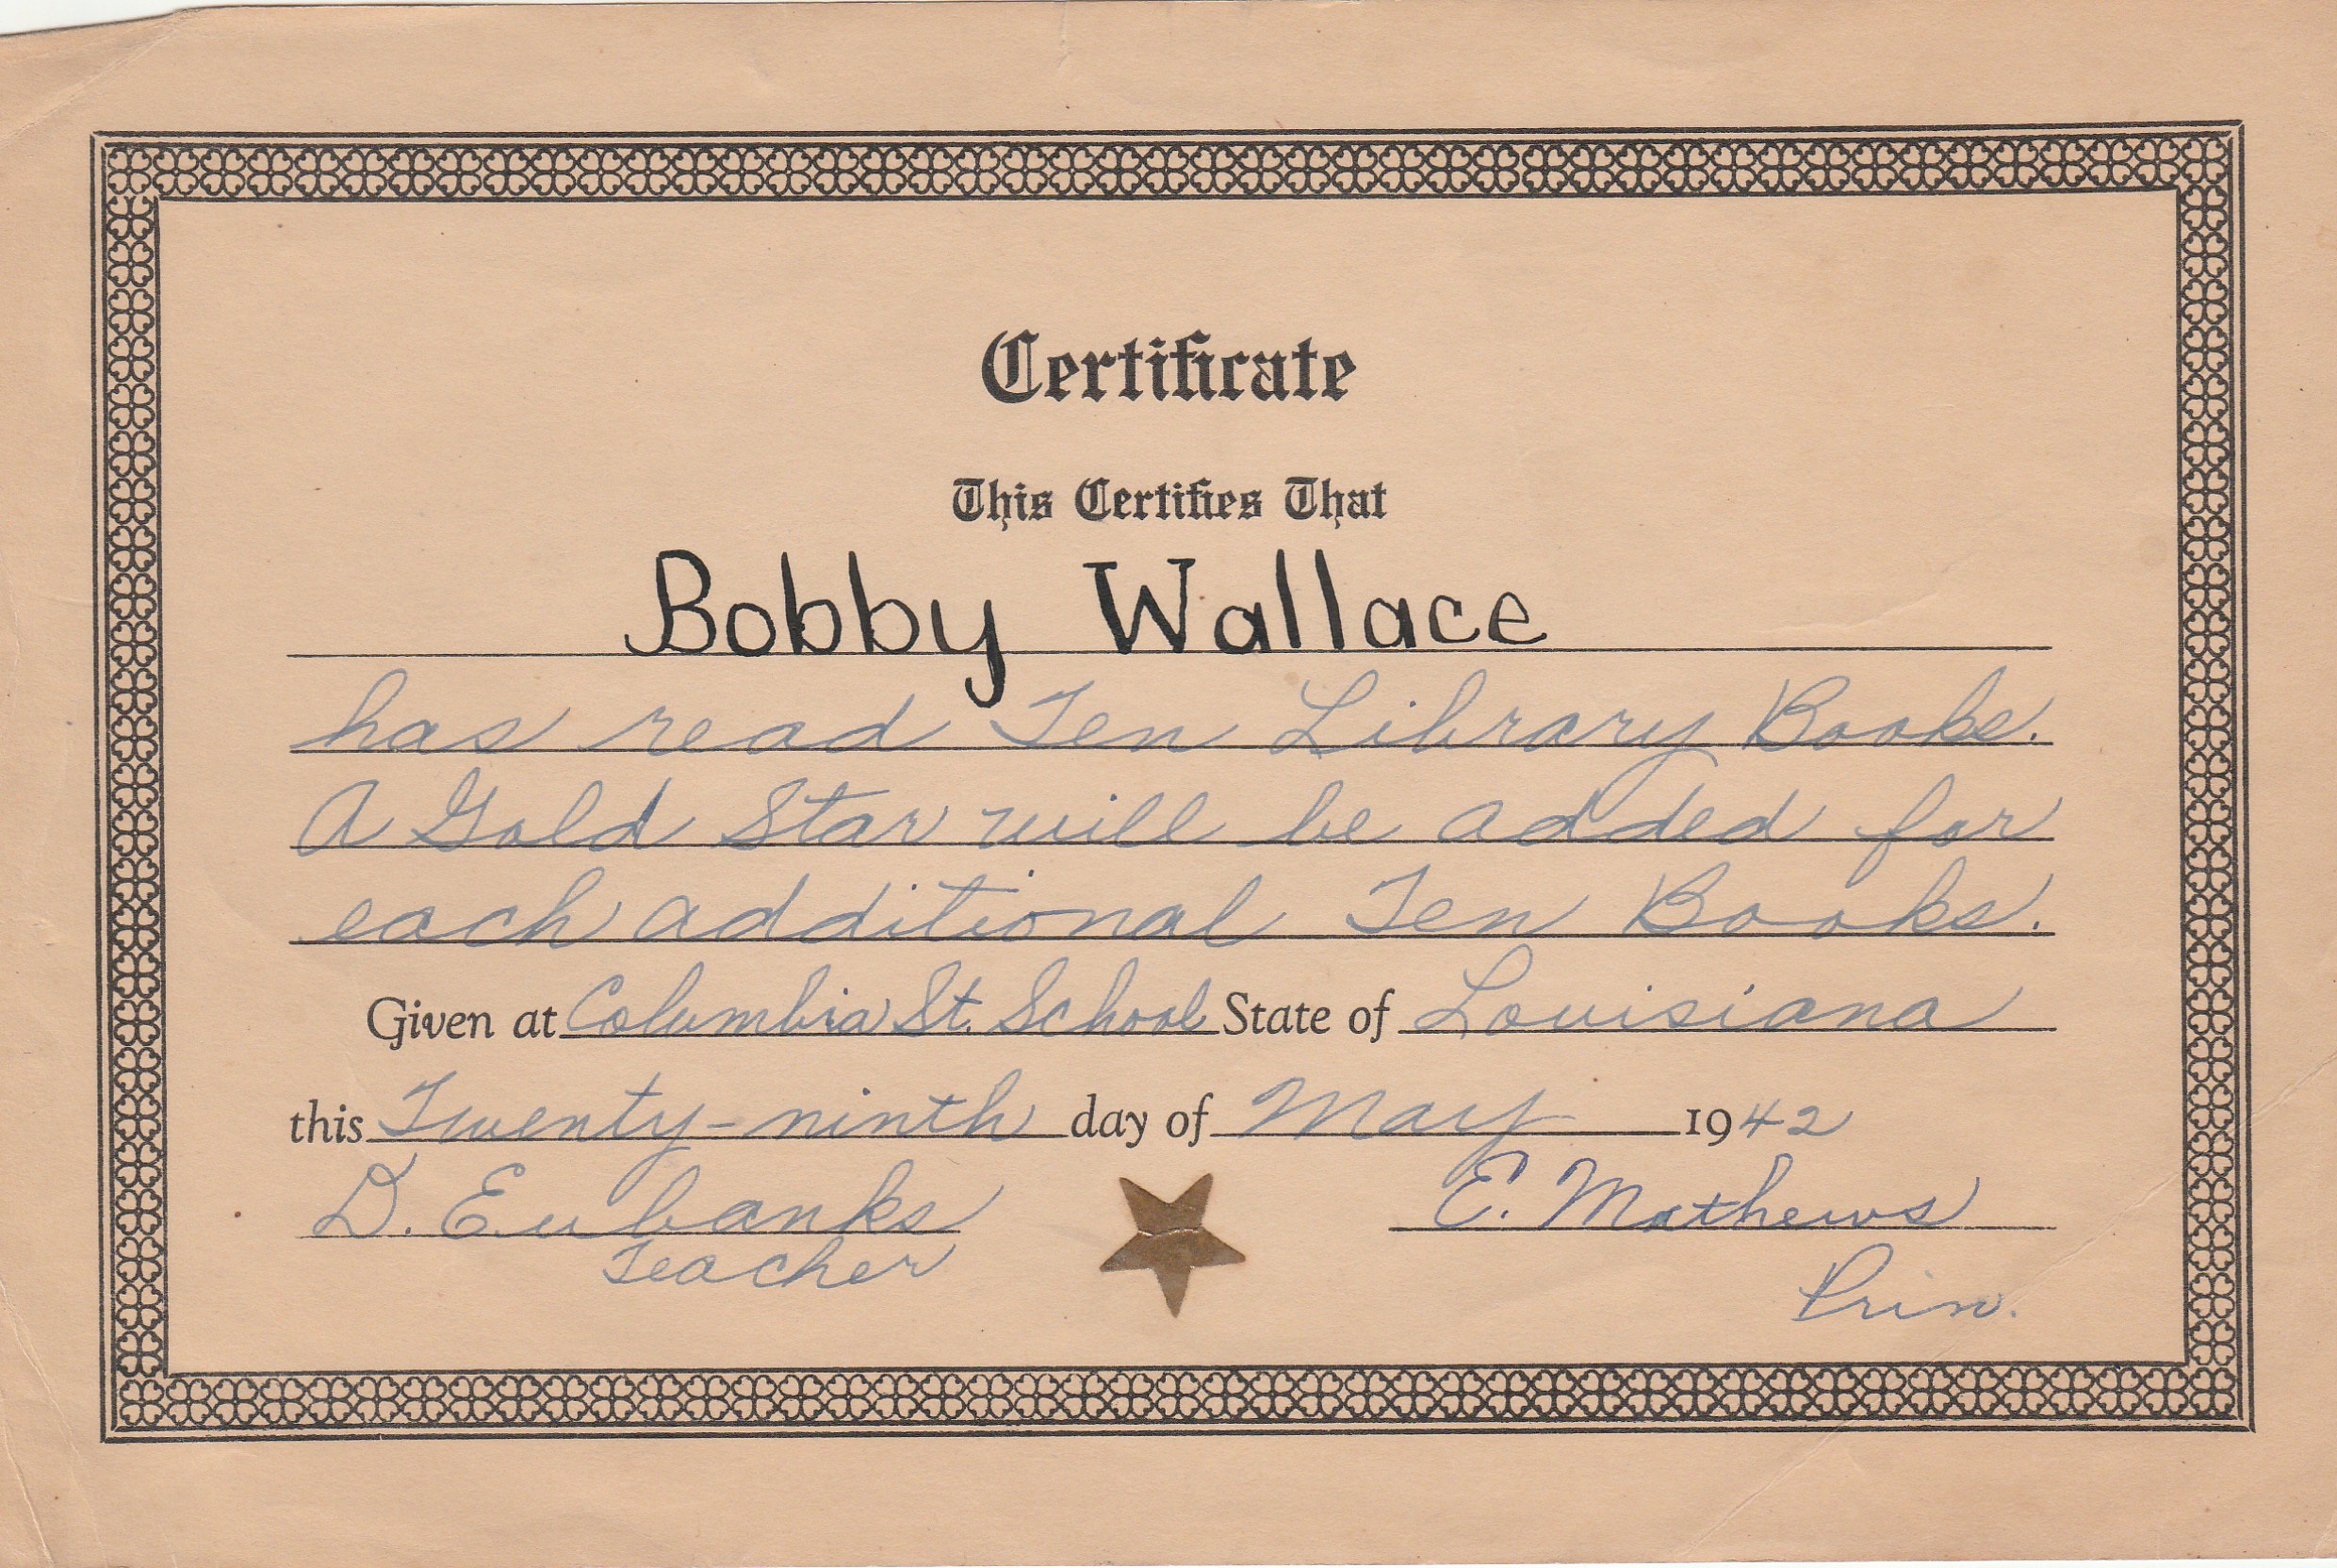 Certificate
This Certifies That
Bobby Wallace
has read Ten Library Books.
A Gold Star will be added for
each additional Ten Books.
Given at Columbia St. School State of Louisiana
this Twenty-ninth day of May 1942
D. Eubanks E. Mathews
Teacher Prin.